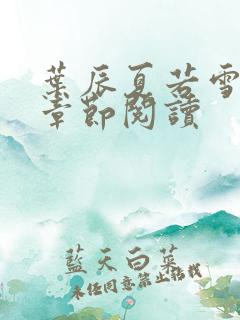 葉辰夏若雪
章節閱讀
藍天白菜
未经同意禁止转载